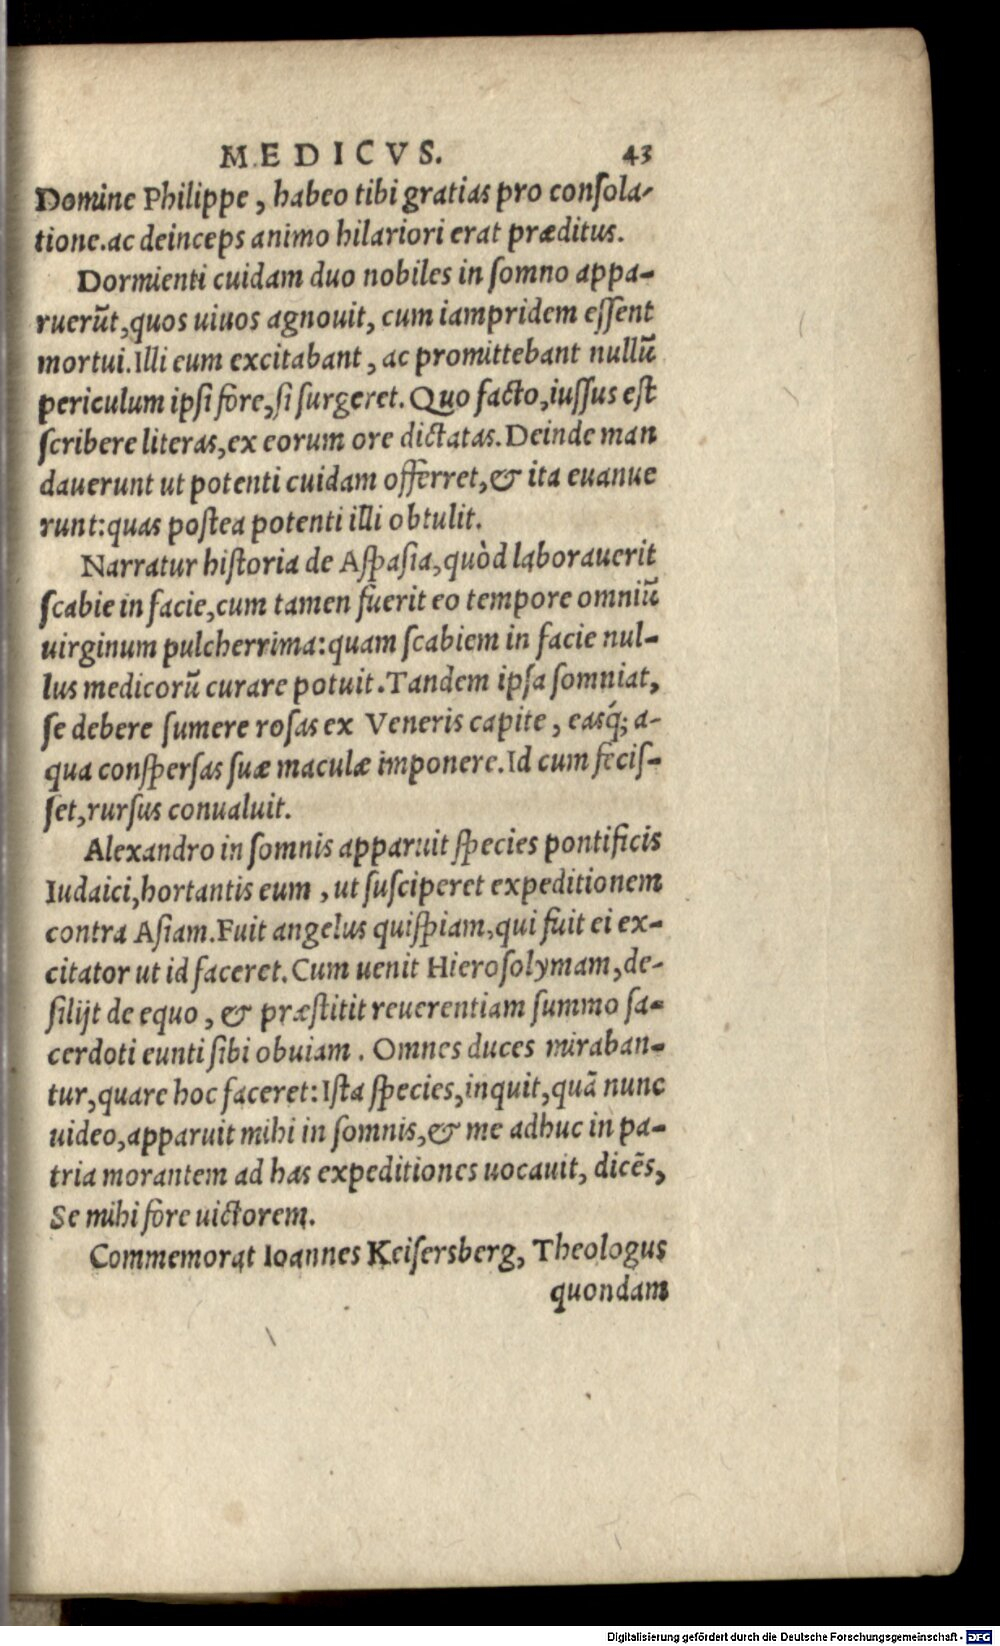 MEDICVS. 43
Domine Philippe, habeo tibi gratias pro conſola-
tione.ac deinceps animo hilariori erat præditus.
Dormienti cuidam duo nobiles in ſomno appa-
ruerūt,quos uiuos agnouit, cum iampridem eſſent
mortui.Illi eum excitabant, ac promittebant nullū
periculum ipſi fore,ſi ſurgeret. Quo facto,iuſſus eſt
ſcribere literas,ex eorum ore dictatas.Deinde man
dauerunt ut potenti cuidam offerret,& ita euanue
runt:quas poſtea potenti illi obtulit.
Narratur hiſtoria de Aſpaſia,quòd laborauerit
ſcabie in facie,cum tamen fuerit eo tempore omniū
uirginum pulcherrima:quam ſcabiem in facie nul-
lus medicorū curare potuit.Tandem ipſa ſomniat,
ſe debere ſumere roſas ex Veneris capite, easq́; a-
qua conſperſas ſuæ maculæ imponere.Id cum feciſ-
ſet,rurſus conualuit.
Alexandro in ſomnis apparuit ſpecies pontificis
Iudaici,hortantis eum, ut ſuſciperet expeditionem
contra Aſiam.Fuit angelus quiſpiam,qui fuit ei ex-
citator ut id faceret.Cum uenit Hieroſolymam,de-
ſilijt de equo, & præſtitit reuerentiam ſummo ſa-
cerdoti eunti ſibi obuiam. Omnes duces miraban-
tur,quare hoc faceret:Iſta ſpecies,inquit,quā nunc
uideo,apparuit mihi in ſomnis,& me adhuc in pa-
tria morantem ad has expeditiones uocauit, dicēs,
Se mihi fore uictorem.
Commemorat Ioannes Keiſersberg, Theologus
quondam
Digitalisierung gefördert durch die Deutsche Forschungsgemeinschaft - DFG